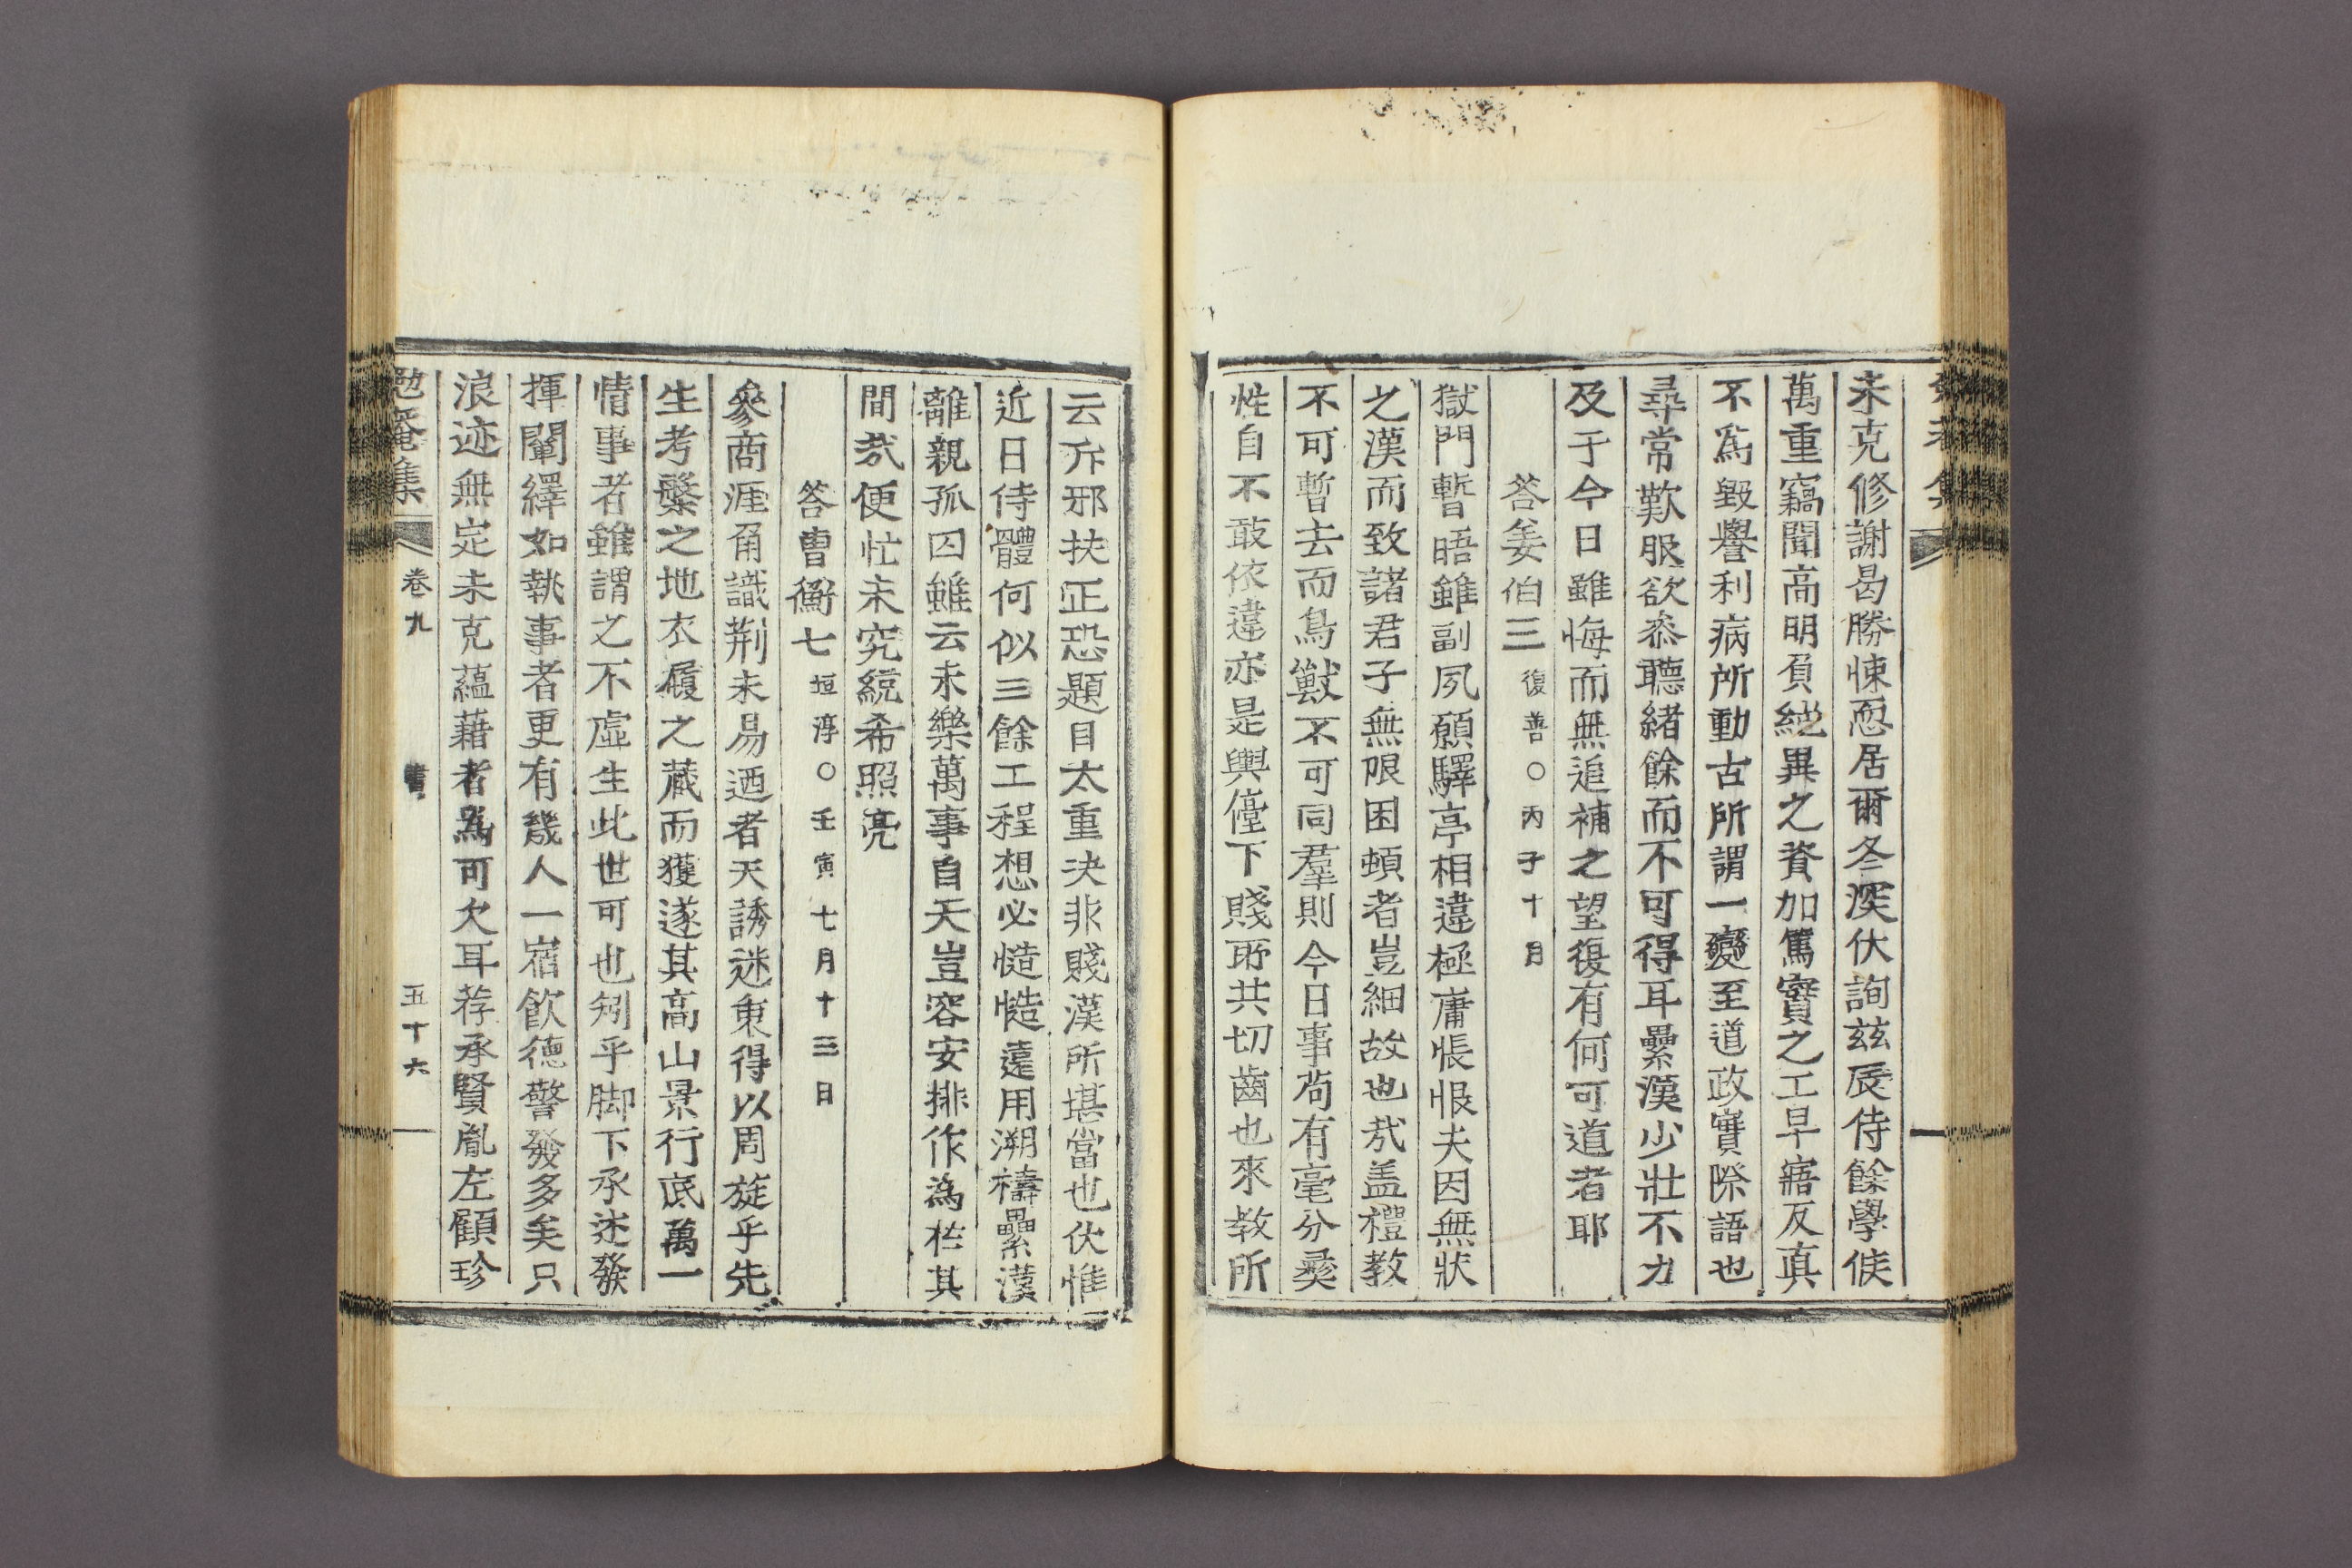 未克修謝曷勝悚恧居爾冬深伏詢玆辰侍餘學候
萬重竊聞高明負絶異之資加篤實之工早寤反眞
不爲毁譽利病所動古所謂一變至道政實際語也
尋常歎服欲忝聽緖餘而不可得耳纍漢少壯不力
及于今日雖悔而無追補之望復有何可道者耶
答姜伯三 復善○丙子十月
獄門暫晤雖副夙願驛亭相違極庸悵恨夫因無狀
之漢而致諸君子無限困頓者豈細故也哉盖禮敎
不可暫去而鳥獸不可同羣則今日事苟有毫分彛
性自不敢依違亦是輿儓下賤所共切齒也來敎所
云斥邪扶正恐題目太重決非賤漢所堪當也伏惟
近日侍體何似三餘工程想必慥慥遠用溯禱纍漢
離親孤囚雖云未樂萬事自天豈容安排作爲於其
間哉便忙未究統希照亮
答曹衡七 垣淳○壬寅七月十三日
參商涯角識荆未易迺者天誘迷衷得以周旋乎先
生考槃之地衣履之藏而獲遂其高山景行底萬一
情事者雖謂之不虛生此世可也矧乎脚下承迷發
揮闡繹如執事者更有幾人一宿飮德警發多矣只
浪迹無定未克蘊藉者爲可欠耳荐承賢胤左顧珍
勉菴集 卷九 書 五十六